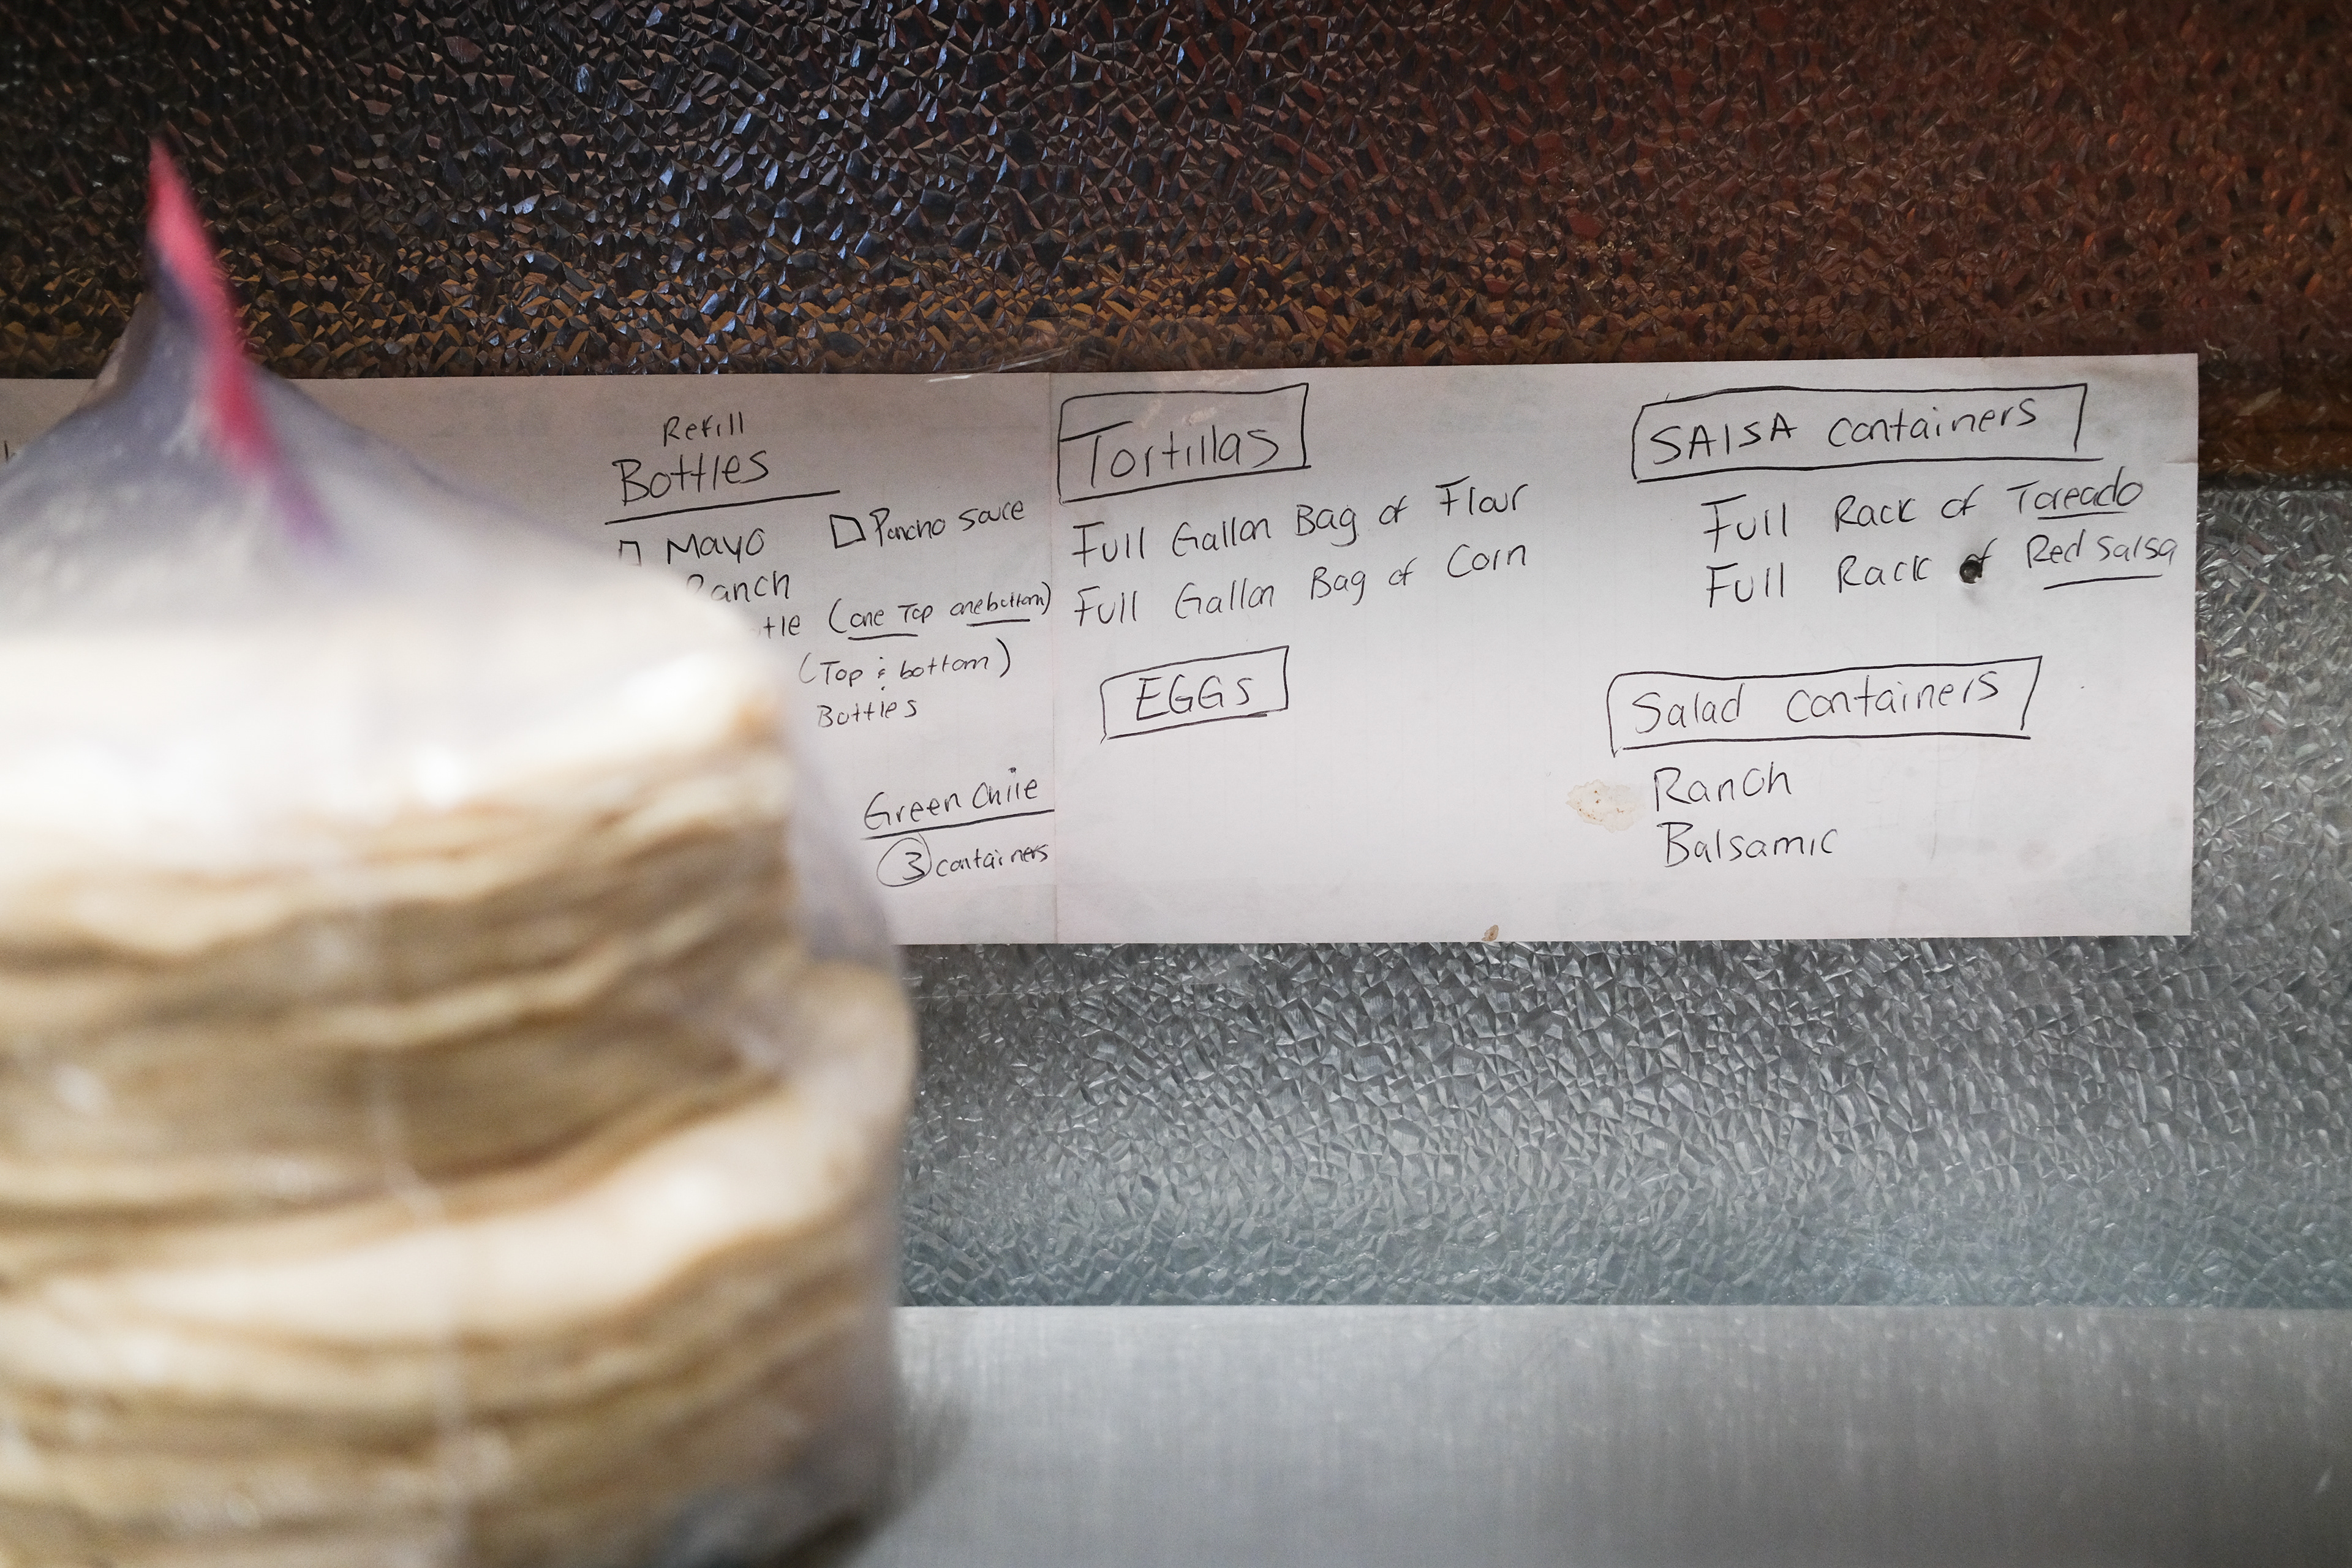 Refill
Bottles
Mayo
Pancho sauce
Ranch
(one Top one bottom)
(Top & bottom)
Bottles
Green Chile
3 containers
Tortillas
Full Gallon Bag of Flour
Full Gallon Bag of Corn
EGGs
SAlSA containers
Full Rack of Toreado
Full Rack of Red Salsa
Salad containers
Ranch
Balsamic